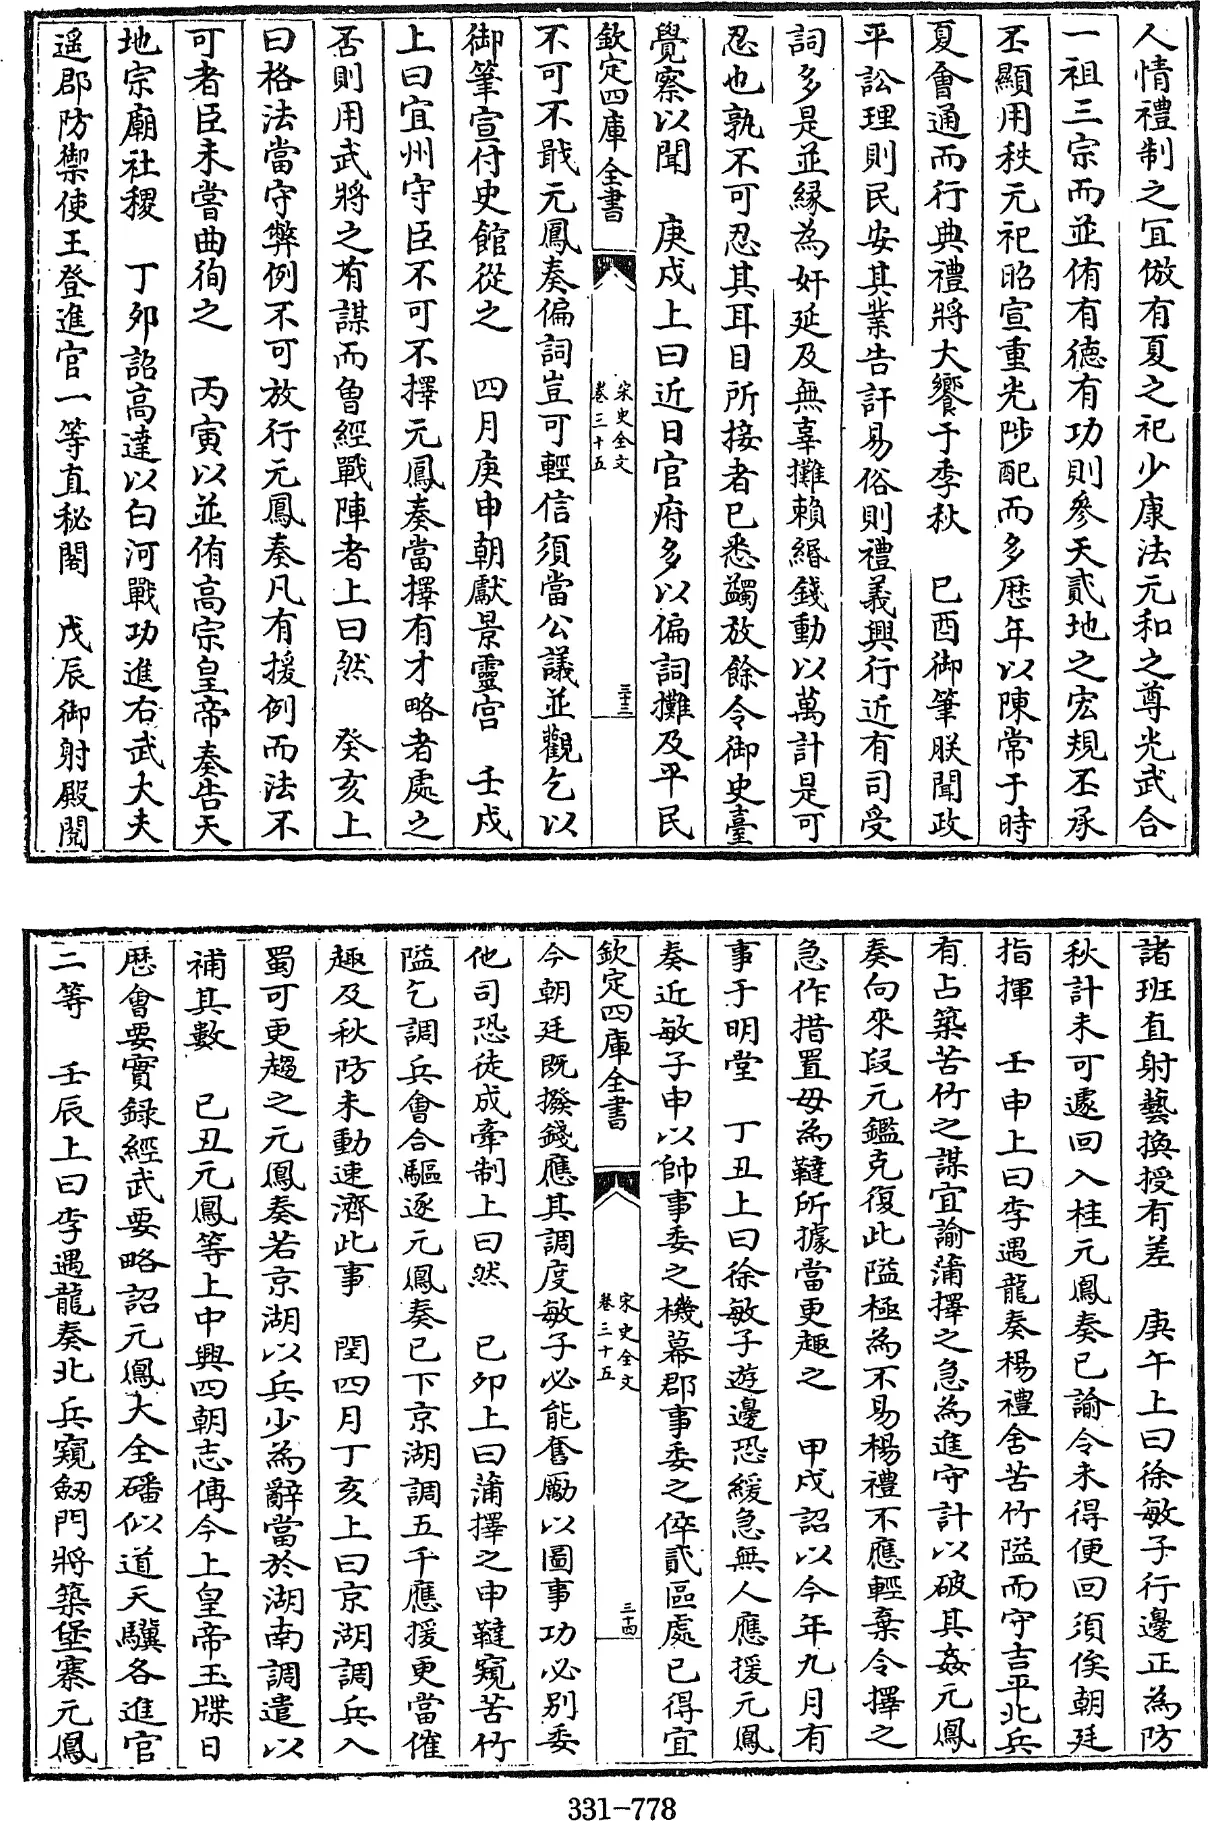 人情禮制之宜倣有夏之祀少康法元和之尊光武合
一祖三宗而並侑有德有功則參天貳地之宏規丕承
丕顯用秩元祀昭宣重光陟配而多歴年以陳常于時
夏會通而行典禮將大饗于季秋　已酉御筆朕聞政
平訟理則民安其業告訐易俗則禮義興行近有司受
詞多是並縁為奸延及無辜攤賴緡錢動以萬計是可
忍也孰不可忍其耳目所接者已悉蠲放餘令御史臺
覺察以聞　庚戍上曰近日官府多以偏詞攤及平民
欽定四庫全書
宋史全文
卷三十五
三十三
不可不戢元鳳奏偏詞豈可輕信須當公議並觀乞以
御筆宣付史館從之　四月庚申朝獻景靈宮　壬戍
上曰宜州守臣不可不擇元鳳奏當擇有才略者處之
否則用武將之有謀而曽經戰陣者上曰然　癸亥上
曰格法當守弊例不可放行元鳳奏凡有援例而法不
可者臣未嘗曲徇之　丙寅以並侑高宗皇帝奏告天
地宗廟社稷　丁夘詔高達以白河戰功進右武大夫
遥郡防禦使王登進官一等直秘閣　戊辰御射殿閲
諸班直射藝換授有差　庚午上曰徐敏子行邊正為防
秋計未可遽回入桂元鳳奏已諭令未得便回須俟朝廷
指揮　壬申上曰李遇龍奏楊禮舍苦竹隘而守吉平北兵
有占築苦竹之謀宜諭蒲擇之急為進守計以破其姦元鳳
奏向來段元鑑克復此隘極為不易楊禮不應輕棄令擇之
急作措置毋為韃所據當更趣之　甲戍詔以今年九月有
事于明堂　丁丑上曰徐敏子遊邊恐緩急無人應援元鳳
奏近敏子申以帥事委之機幕郡事委之倅貳區處已得宜
欽定四庫全書
宋史全文
卷三十五
三十四
今朝廷既撥錢應其調度敏子必能奮勵以圖事功必别委
他司恐徒成牽制上曰然　已夘上曰蒲擇之申韃窺苦竹
隘乞調兵會合驅逐元鳳奏已下京湖調五千應援更當催
趣及秋防未動速濟此事　閏四月丁亥上曰京湖調兵入
蜀可更趨之元鳳奏若京湖以兵少為辭當於湖南調遣以
補其數　已丑元鳳等上中興四朝志傳今上皇帝玉牒日
歴會要實録經武要略詔元鳳大全磻似道天驥各進官
二等　壬辰上曰李遇龍奏北兵窺劔門將築堡寨元鳳
331-778